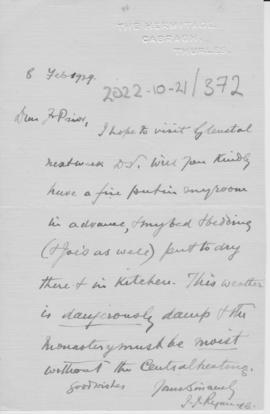 THE HERMITAGE,
CABRAGH,
THURLES.
8 Feb 1929.
2022-10-21/372
Dear Fr Prior,
I hope to visit Glenstal
next week D.V. Will you kindly
have a fire put in my room
in advance, & my bed & bedding
(& Joe's as well) put to dry
there & in Kitchen. This weather
is dangerously damp & the
Monastery must be moist
without the Central heating.
Good wishes
Yours Sincerely
J. J. Ryan